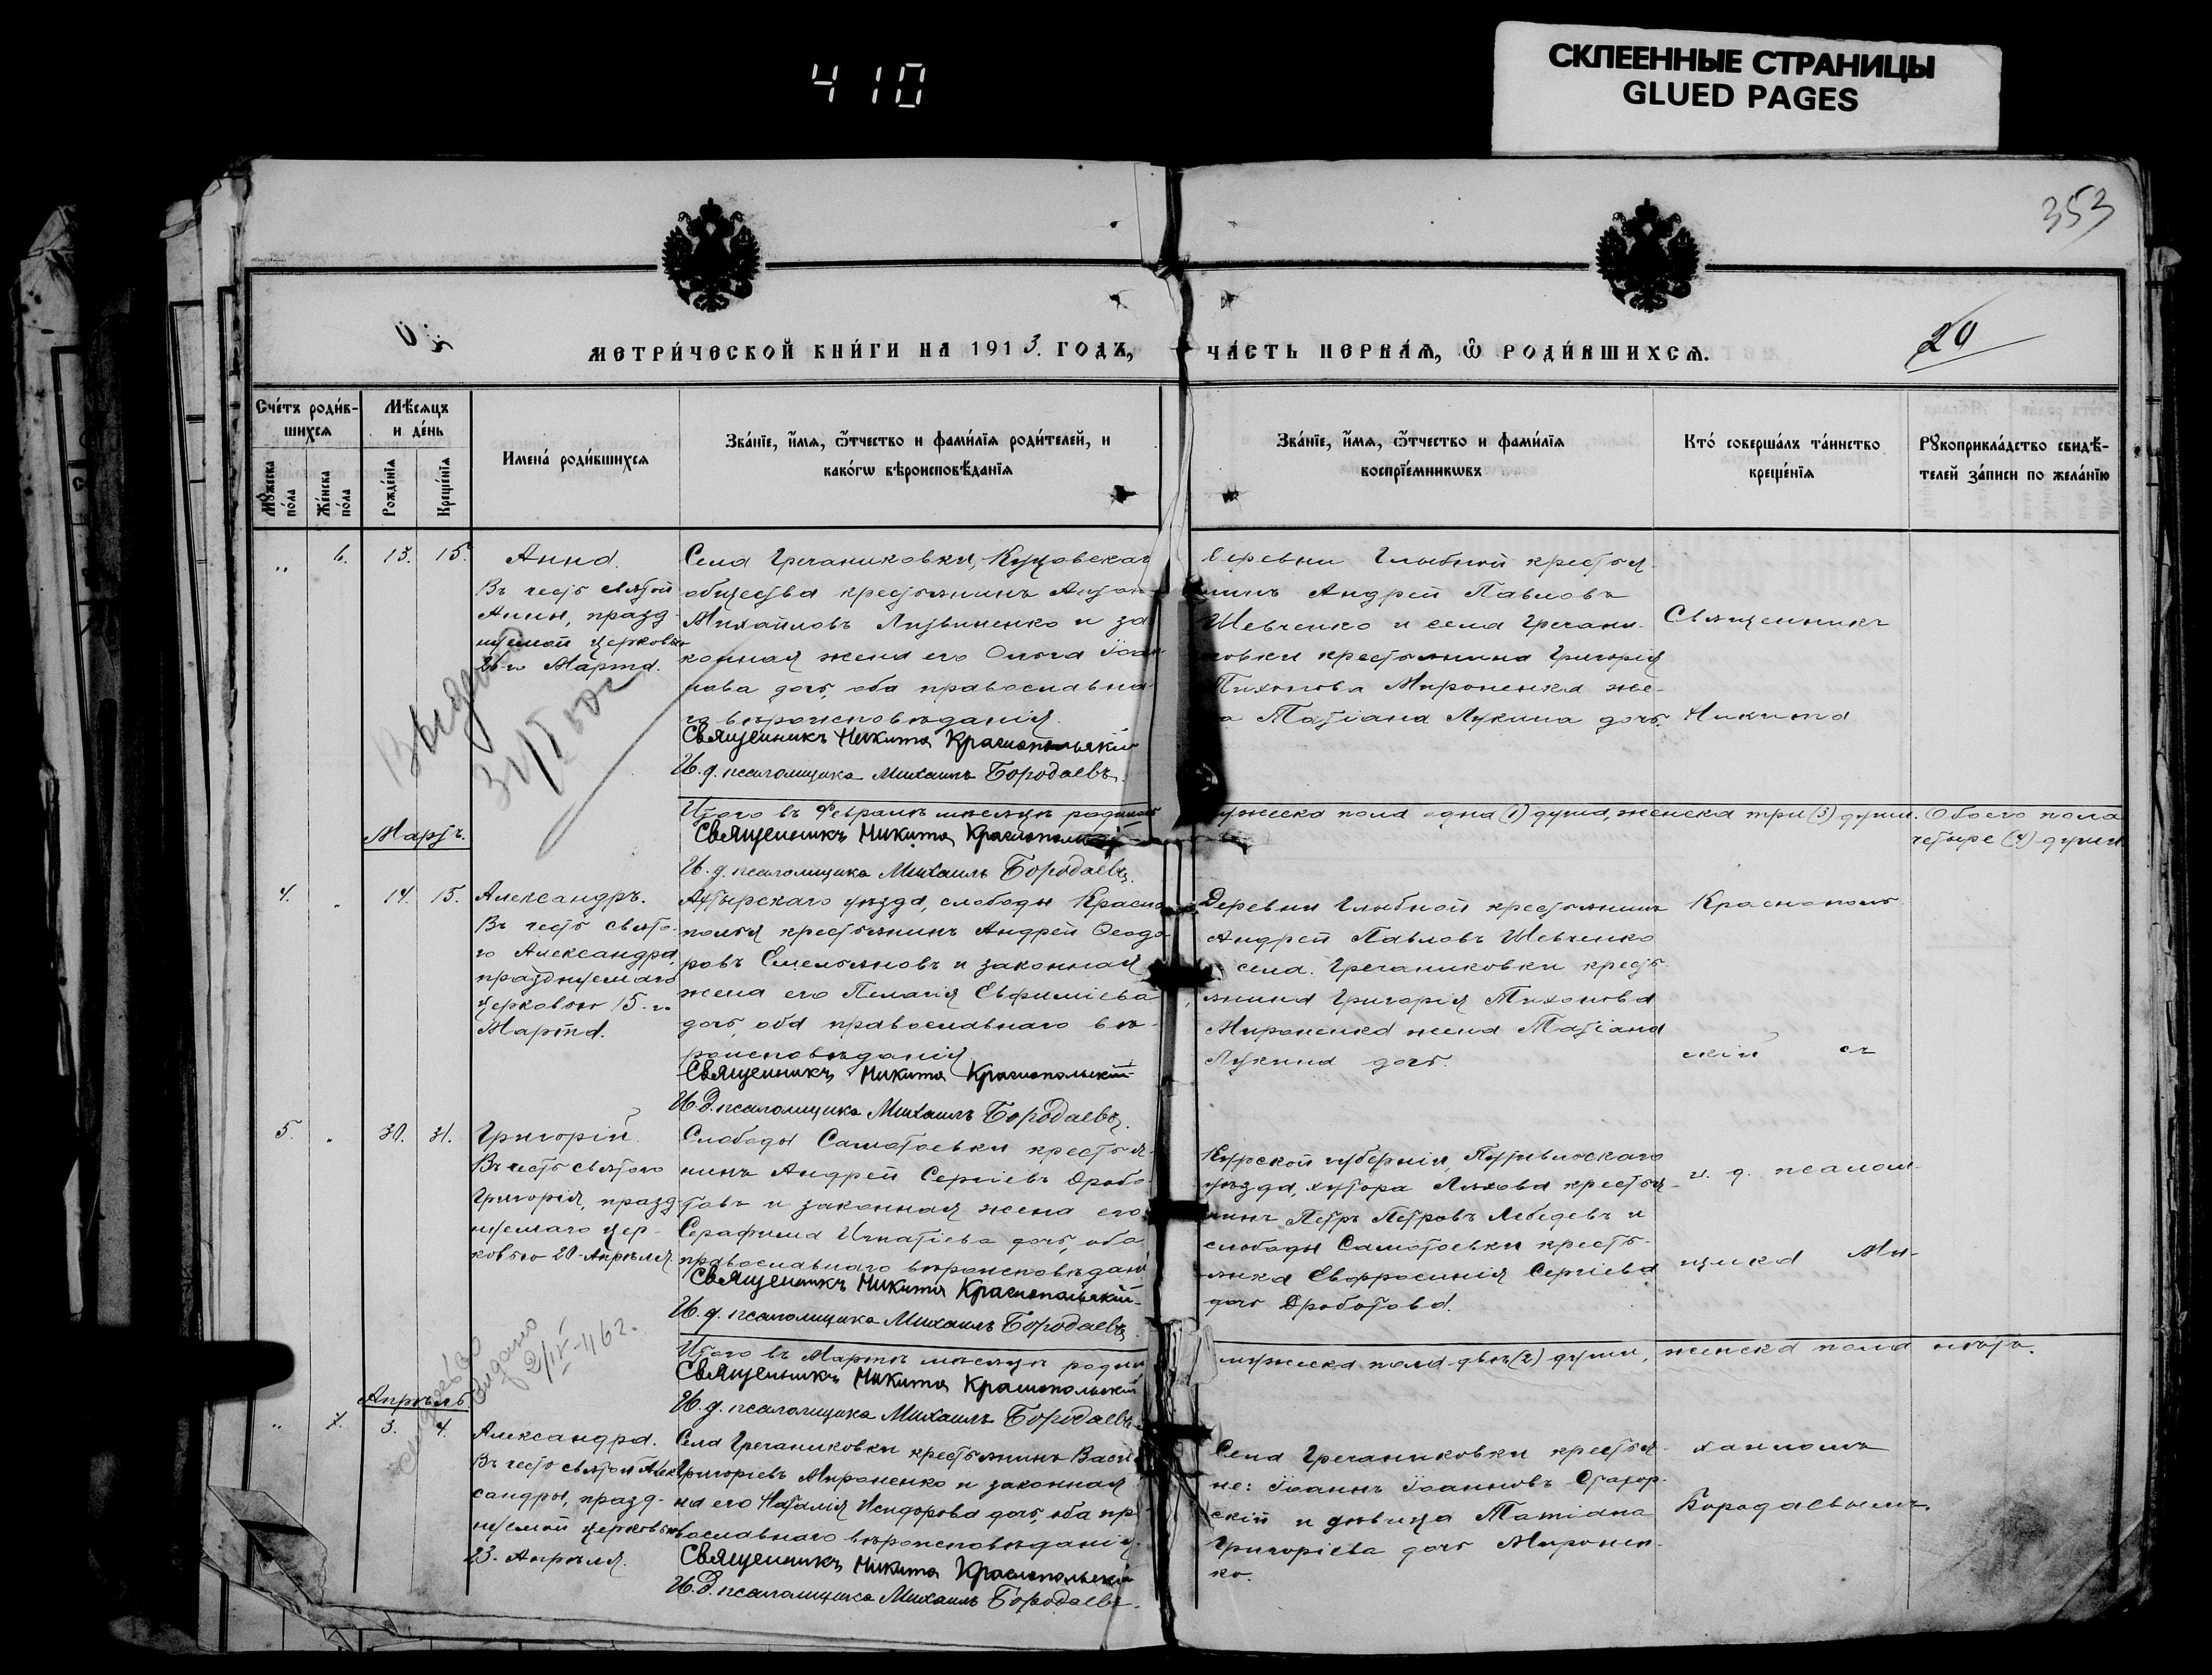 410
СКЛЕЕННЫЕ СТРАНИЦЫ
GLUED PAGES
353
МЕТРИ́ЧЕСКОЙ КНИ́ГИ НА 1913. ГОДЪ,
ЧА́СТЬ ПЕРВА́Я, Ѡ҆ РОДИ́ВШИХСЯ.
20
Сче́тъ роди́в-
шихся
Мꙋ́жеска по́ла
Же́нска по́ла
Мѣ́сяцъ
и де́нь
Рожде́нїя
Креще́нїя
Имена́ роди́вшихся
Зва́нїе, и҆́мя, ѻ҆́тчество и фами́лїя роди́телей, и
како́гѡ вѣроисповѣ́данїя
Зва́нїе, и҆́мя, ѻ҆́тчество и фами́лїя
воспрїе́мникѡвъ
Кто́ соверша́лъ та́инство
креще́нїя
Рꙋкоприкла́дство свидѣ́-
телей за́писи по жела́нїю
„ 6. 13. 15.
Анна.
Въ честь святой
Анны, празд-
нуемой церковью
26-го Марта.
Села Гречаниковки, Куцовскаго
общества крестьянинъ Антон
Михайловъ Литвиненко и за
конная жена его Ольга Іоан
нова дочь, оба православна-
го вѣроисповѣданія.
Священникъ Никита Краснопольскій
И. д. псаломщика Михаилъ Бородаевъ.
Деревни Глыбной крестья-
нинъ Андрей Павловъ
Шевченко и села Гречани-
ковки крестьянина Григорія
Тихонова Мироненка же-
на Татіана Лукина дочь.
Священникъ
Никита
Итого въ Февралѣ мѣсяцѣ родилось
мужеска пола одна (1) душа, женска три (3) души. Обоего пола
четыре (4) души
Священникъ Никита Краснопольскій
И. д. псаломщика Михаилъ Бородаевъ.
Мартъ.
4. „ 14. 15.
Александръ.
Въ честь свято-
го Александра,
празднуемаго
церковью 15-го
Марта.
Ахтырскаго уѣзда, слободы Красно
полья крестьянинъ Андрей Ѳеодо
ровъ Емельяновъ и законная
жена его Пелагія Евфиміева
дочь, оба православнаго вѣ-
роисповѣданія
Священникъ Никита Краснопольскій
И. д. псаломщика Михаилъ Бородаевъ.
Деревни Глыбной крестьянинъ
Андрей Павловъ Шевченко
села Гречаниковки кресть-
янина Григорія Тихонова
Мироненка жена Татіана
Лукина дочь.
Краснополь
скій съ
5. „ 30. 31.
Григорій.
Въ честь святого
Григорія, празд-
нуемаго цер-
ковью 20 Апрѣля.
Слободы Самотоевки крестья-
нинъ Андрей Сергіевъ Дробо-
товъ и законная жена его
Серафима Игнатіева дочь, оба
православнаго вѣроисповѣдані
Священникъ Никита Краснопольскій
И. д. псаломщика Михаилъ Бородаевъ.
Курской губерніи, Путивльскаго
уѣзда, хутора Ляхова крестья-
нинъ Петръ Петровъ Лебедевъ и
слободы Самотоевки кресть-
янка Евфросинія Сергіева
дочь Дроботова.
и. д. псалом-
щика Ми-
Итого въ Мартѣ мѣсяцѣ родил
мужеска пола двѣ (2) души, женска пола нѣтъ.
Священникъ Никита Краснопольскій
И. д. псаломщика Михаилъ Бородаевъ.
Апрѣль
„ 7. 3. 4.
Александра.
Въ честь святой Алек
сандры, празд-
нуемой церковью
23. Апрѣля.
Села Гречаниковки крестьянинъ Васи
Григоріевъ Мироненко и законная
на его Наталія Исидорова дочь, оба пра
вославнаго вѣроисповѣданія.
Священникъ Никита Краснопольскій
И. д. псаломщика Михаилъ Бородаевъ.
Села Гречаниковки крестья-
не: Іоаннъ Іоанновъ
скій и дѣвица Татіана
Григоріева дочь Миронен-
ко.
хаиломъ
Бородаевымъ.
Выдано
Выдано
2/IV-46г.